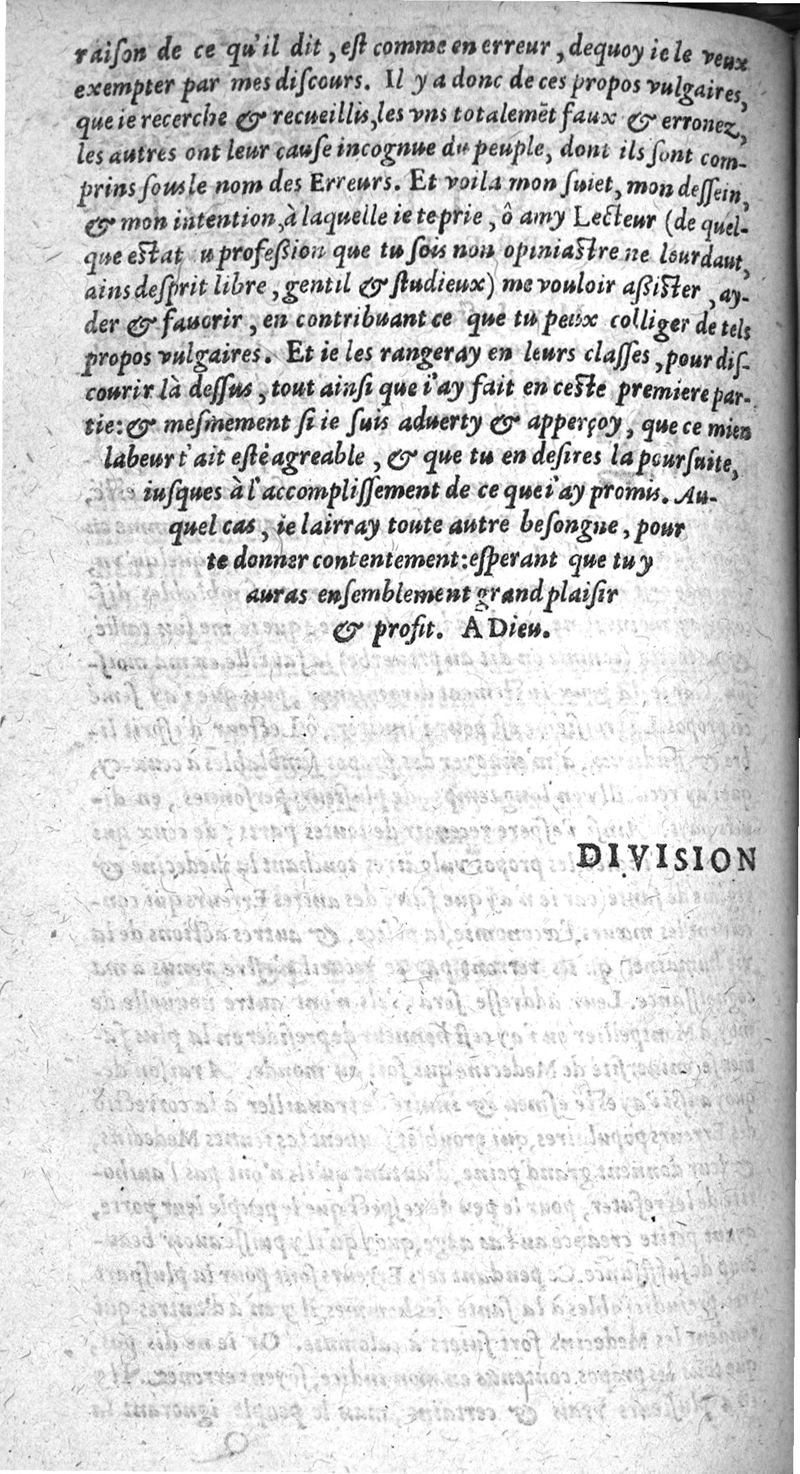 raiſon de ce qu'il dit, eſt comme en erreur, dequoy ie le veux
exempter par mes diſcours. Il y a donc de ces propos vulgaires,
que ie recerche & recueillis, les vns totalemẽt faux & erronez,
les autres ont leur cauſe incognue du peuple, dont ils ſont com-
prins ſous le nom des Erreurs. Et voila mon ſuiet, mon deſſein,
& mon intention, à laquelle ie te prie, ô amy Lecteur (de quel-
que eſtat u profeſſion que tu ſois non opiniaſtre ne lourdaut,
ains deſprit libre, gentil & ſtudieux) me vouloir aſſiſter, ay-
der & fauorir, en contribuant ce que tu peux colliger de tels
propos vulgaires. Et ie les rangeray en leurs claſſes, pour diſ-
courir là deſſus, tout ainſi que i'ay fait en ceſte premiere par-
tie: & meſmement ſi ie ſuis aduerty & apperçoy, que ce mien
labeur t'ait eſté agreable, & que tu en deſires la pourſuite,
iuſques à l'accompliſſement de ce que i'ay promis. Au-
quel cas, ie lairray toute autre beſongne, pour
te donner contentement: eſperant que tu y
auras enſemblement grand plaiſir
& profit. A Dieu.
DIVISION